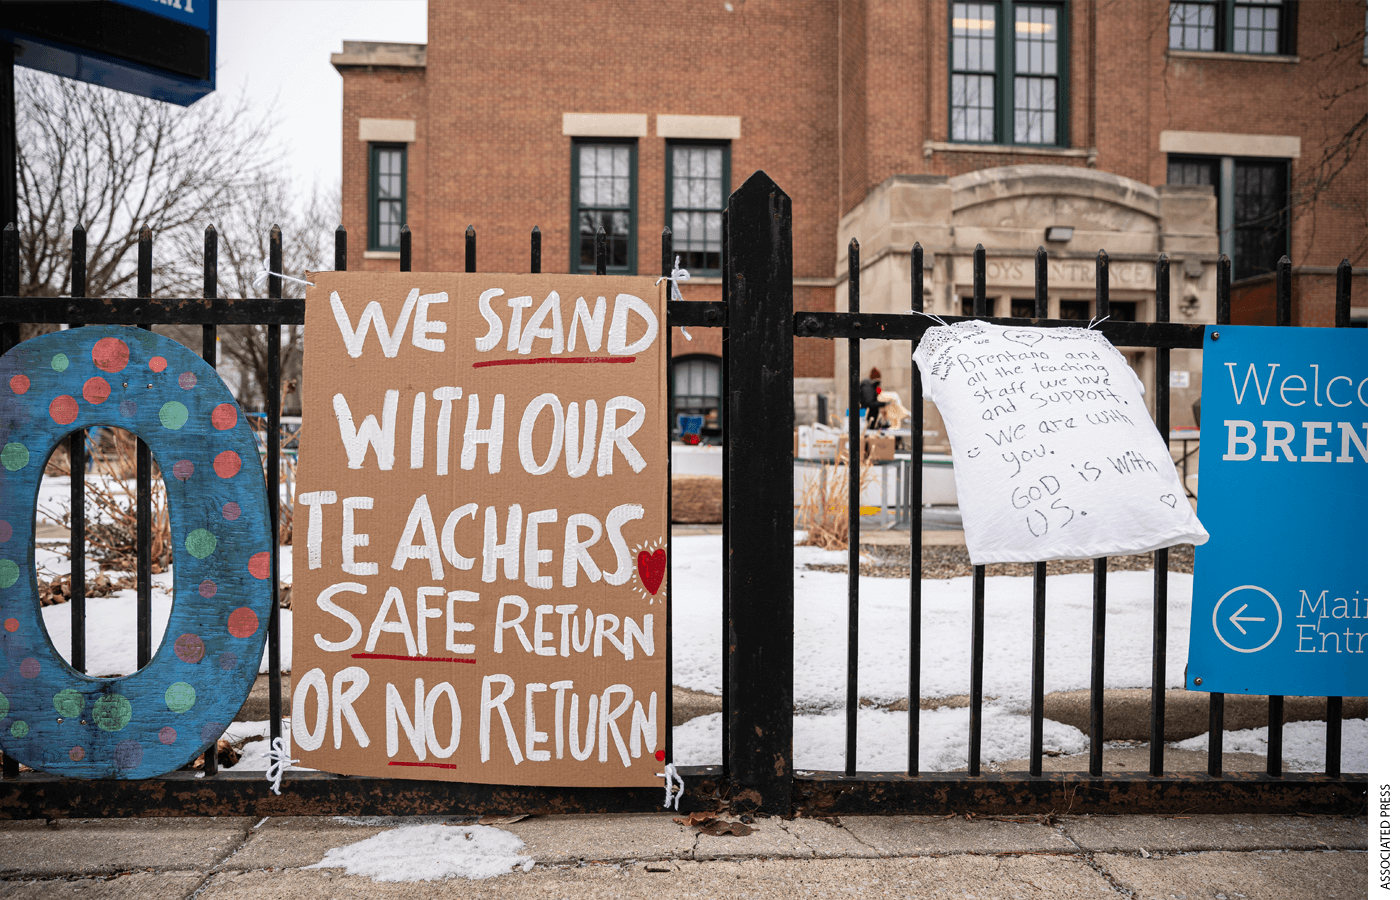 WE STAND
WITH OUR
TEACHERS
SAFE RETURN
OR NO RETURN.
we
Brentano and
all the teaching
staff we love
and support.
We are with
you.
GOD is with
US.
OYS ENTRANCE
Welco
BREN
Mai
Entr
O
ASSOCIATED PRESS